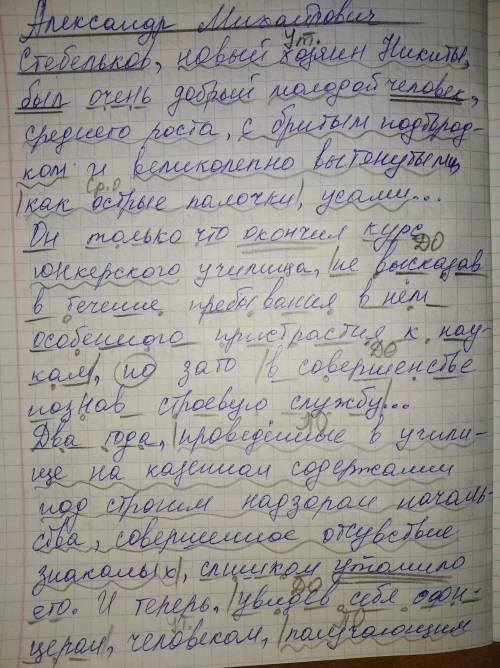 Александр Михайлович
Ут.
Стебельков, новый хозяин Никиты,
был очень добрый молодой человек,
среднего роста, с бритым подбород-
ком и великолепно вытянутыми,
Ср.о
|как острые палочки|, усами...
Он только что окончил курс
ДО
юнкерского училища, |не высказав
в течение пребывания в нём
особенного пристрастия к нау-
ДО
кам|, но зато |в совершенстве
познав строевую службу|...
ПО
Два года, |проведённые в учили-
ще на казенном содержании
под строгим надзором началь-
ства, совершенное отсувствие
знакомых|, слишком утомило
ДО
его. И теперь, |увидев себя офи-
Ут. ПО
цером, человеком, |получающим